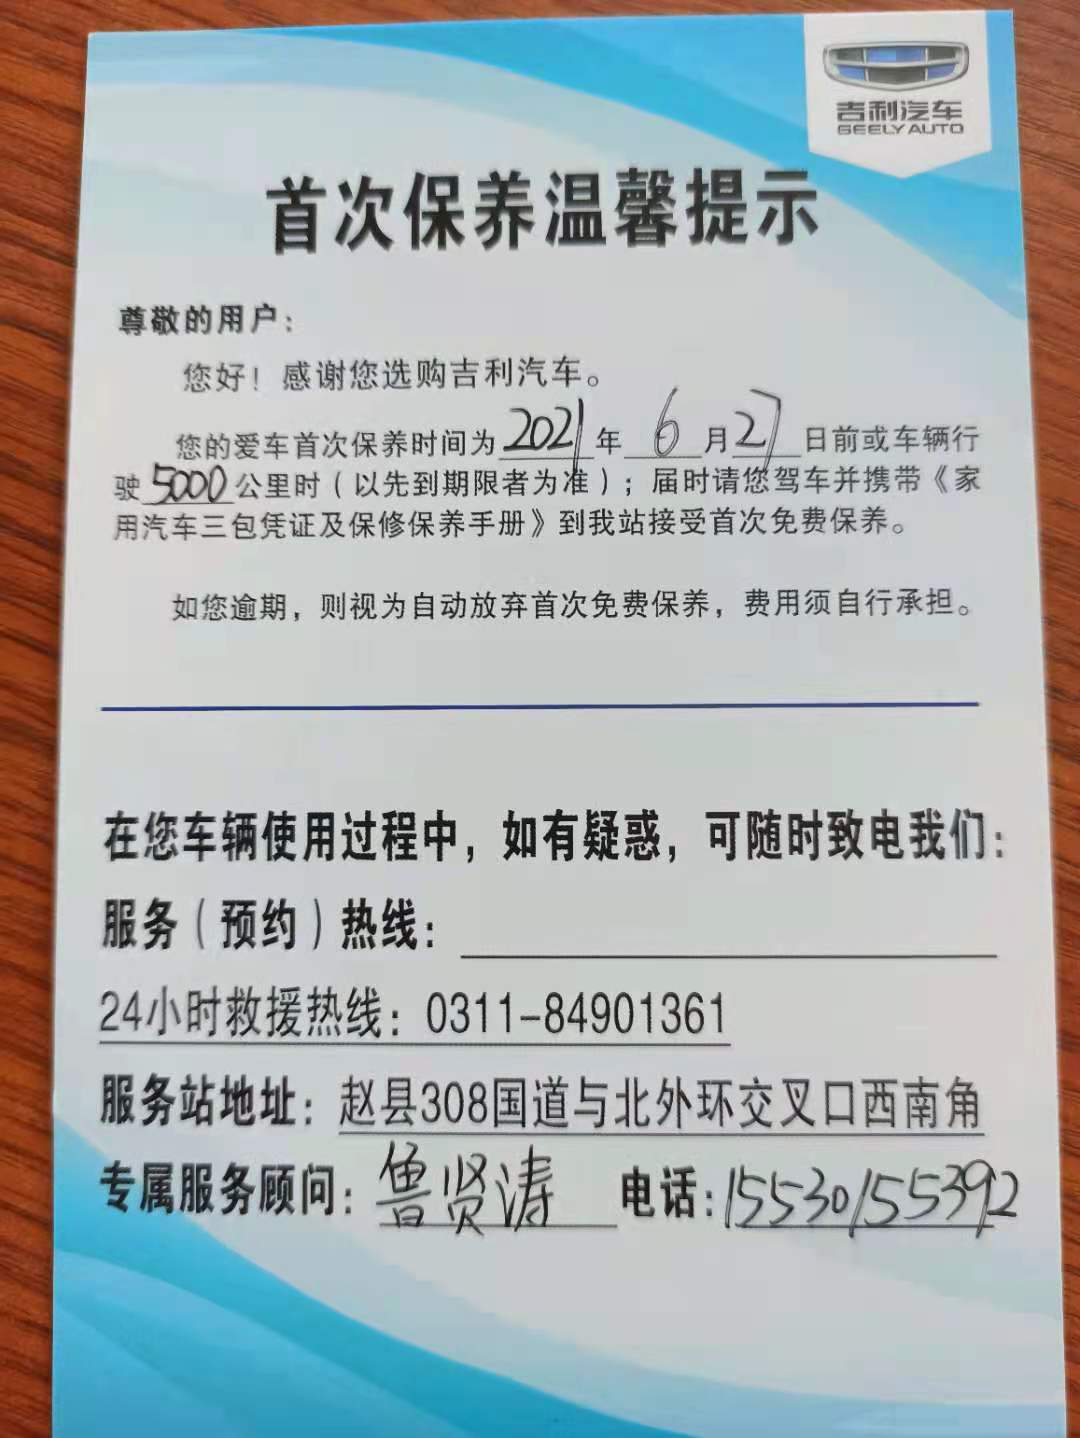 吉利汽车
GEELY AUTO
首次保养温馨提示
尊敬的用户：
您好！感谢您选购吉利汽车。
您的爱车首次保养时间为2021年6月27日前或车辆行
驶5000公里时（以先到期限者为准）；届时请您驾车并携带《家
用汽车三包凭证及保修保养手册》到我站接受首次免费保养。
如您逾期，则视为自动放弃首次免费保养，费用须自行承担。
在您车辆使用过程中，如有疑惑，可随时致电我们：
服务（预约）热线：
24小时救援热线：0311-84901361
服务站地址：赵县308国道与北外环交叉口西南角
专属服务顾问：鲁贤涛 电话：15530155392